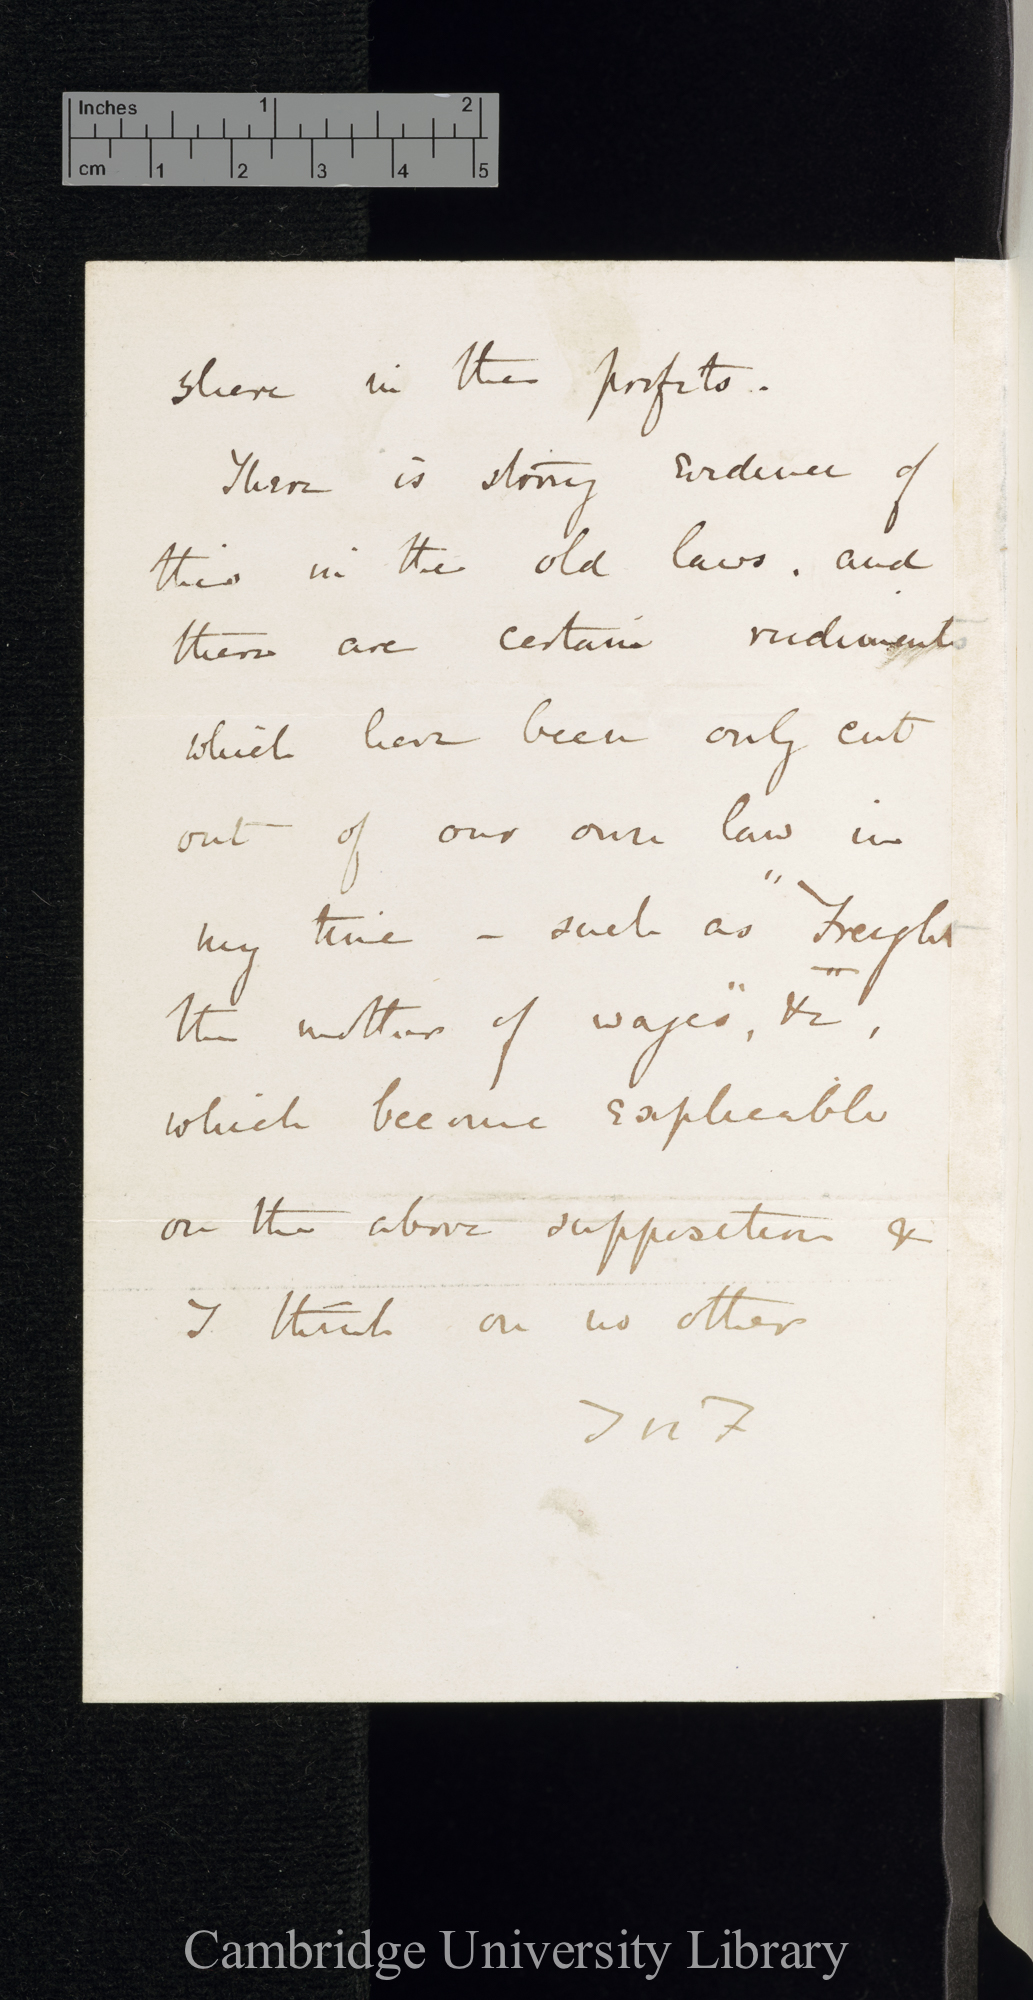 Inches 1 2
cm 1 2 3 4 5
share in the profits.
There is strong evidence of
this in the old laws. and
there are certain rudiments
which have been only cut
out of our own law in
my time – such as "Freight
the mother of wages", &c",
which become explicable
on the above supposition &
I think on no other
Cambridge University Library